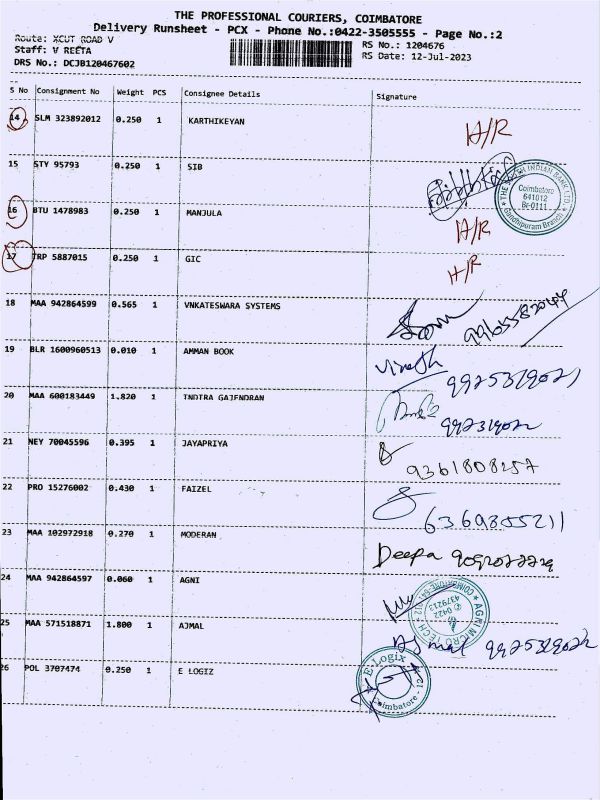 THE PROFESSIONAL COURIERS, COIMBATORE
Delivery Runsheet - PCX - Phone No.:0422-3505555 - Page No.:2
Route: XCUT ROAD V
RS No.: 1204676
Staff: V REETA
RS Date: 12-Jul-2023
DRS No.: DCJB120467602
S No Consignment No Weight PCS Consignee Details Signature
14 SLM 323892012 0.250 1 KARTHIKEYAN H/R
15 STY 95793 0.250 1 SIB
Coimbatore
641012
Br-0111
Gandhipuram Branch
16 BTU 1478983 0.250 1 MANJULA H/R
17 TRP 5887015 0.250 1 GIC H/R
18 MAA 942864599 0.565 1 VNKATESWARA SYSTEMS
19 BLR 1600960513 0.010 1 AMMAN BOOK
20 MAA 600183449 1.820 1 INDIRA GAJENDRAN
21 NEY 70045596 0.395 1 JAYAPRIYA 9361808257
22 PRO 15276002 0.430 1 FAIZEL 6369855211
23 MAA 102972918 0.270 1 MODERAN Deepa
24 MAA 942864597 0.060 1 AGNI
25 MAA 571518871 1.800 1 AJMAL
26 POL 3707474 0.250 1 E LOGIZ
E Logix
Coimbatore - 12